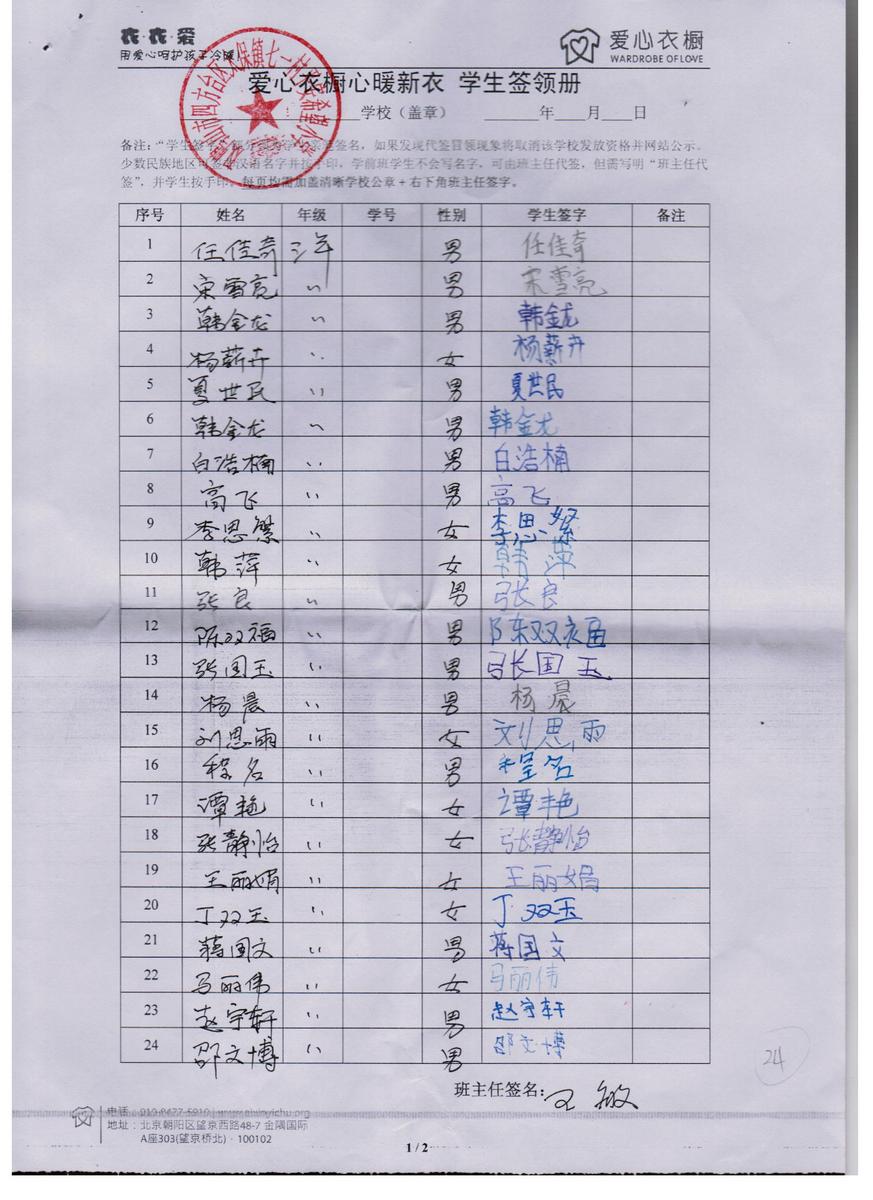 衣·衣·爱
用爱心呵护孩子冷暖!
爱心衣橱
WARDROBE OF LOVE
爱心衣橱心暖新衣 学生签领册
学校（盖章） 年 月 日
备注：“学生签字” 亲笔签名，如果发现代签冒领现象将取消该学校发放资格并网站公示。
少数民族地区可签非汉语名字并按手印，学前班学生不会写名字，可由班主任代签，但需写明“班主任代
签”，并学生按手印。每页均需加盖清晰学校公章+右下角班主任签字。
序号 姓名 年级 学号 性别 学生签字 备注
1 任佳奇 三年 男 任佳奇
2 宋雪亮 〃 男 宋雪亮
3 韩金龙 〃 男 韩金龙
4 杨薪卉 〃 女 杨薪卉
5 夏世民 〃 男 夏世民
6 韩金龙 〃 男 韩金龙
7 白浩楠 〃 男 白浩楠
8 高飞 〃 男 高飞
9 李思繁 〃 女 李思繁
10 韩萍 〃 女 韩萍
11 张良 〃 男 张良
12 陈双福 〃 男 陈双福
13 张国玉 〃 男 张国玉
14 杨晨 〃 男 杨晨
15 刘思雨 〃 女 刘思雨
16 程名 〃 男 程名
17 谭艳 〃 女 谭艳
18 张静怡 〃 女 张静怡
19 王丽娟 〃 女 王丽娟
20 丁双玉 〃 女 丁双玉
21 蒋国文 〃 男 蒋国文
22 马丽伟 〃 女 马丽伟
23 赵宇轩 〃 男 赵宇轩
24 邵文博 〃 男 邵文博
24
班主任签名: 王敏
电话:
地址: 北京朝阳区望京西路48-7 金隅国际
A座303(望京桥北) · 100102
1 / 2